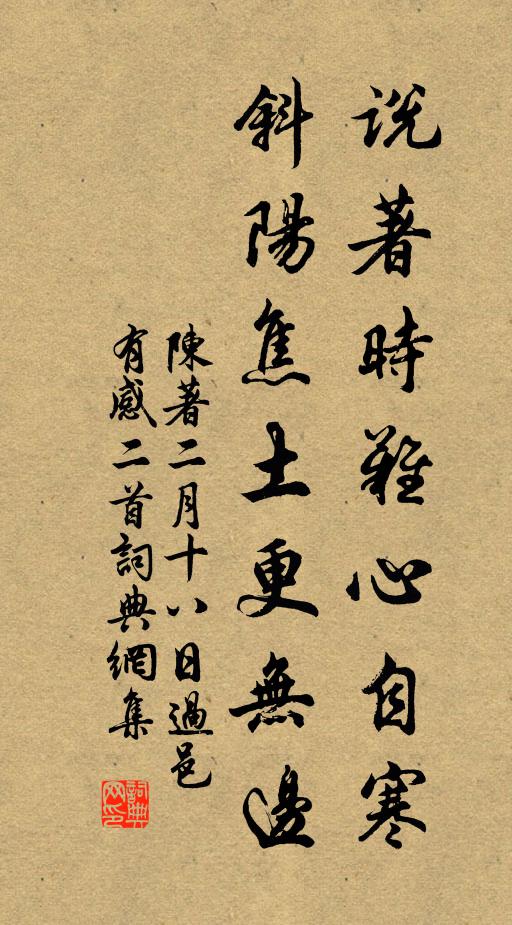 說著時難心自寒
斜陽焦土更無邊
陳著二月十八日過邑
有感二首詞典網集
詞典
网印